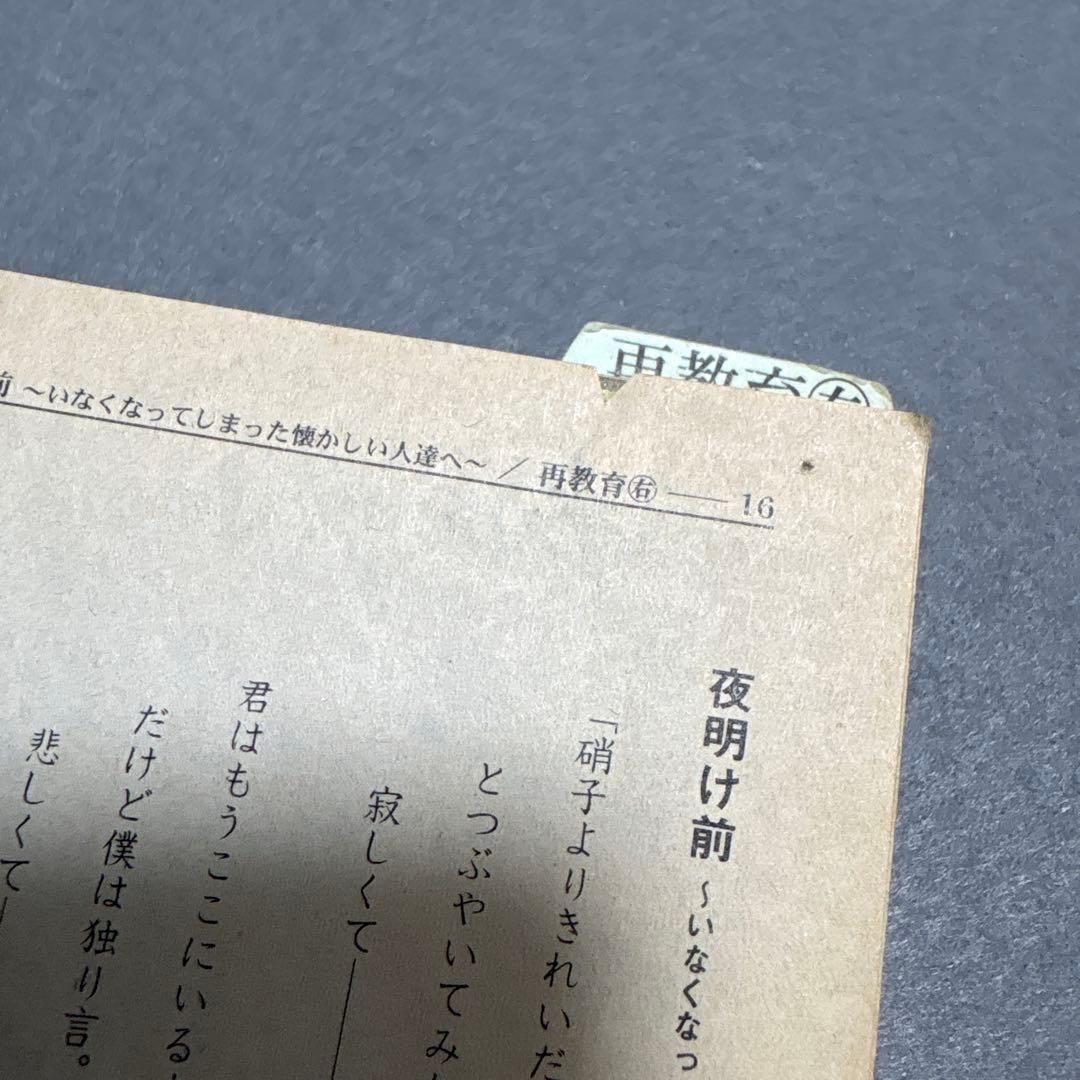 再教育㊨
前 ～いなくなってしまった懐かしい人達へ～ ／ 再教育㊨ ── 16
夜明け前 ～いなくなっ
「硝子よりきれいだ
とつぶやいてみ
寂しくて──
君はもうここにいる
だけど僕は独り言。
悲しくて─